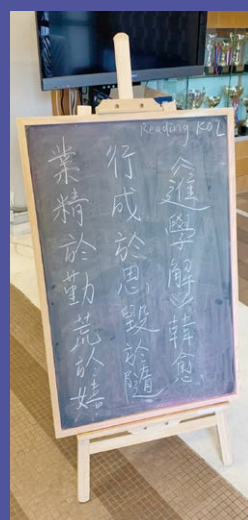 Reading KOL
《進學解》韓愈
行成於思,毀於隨
業精於勤荒於嬉